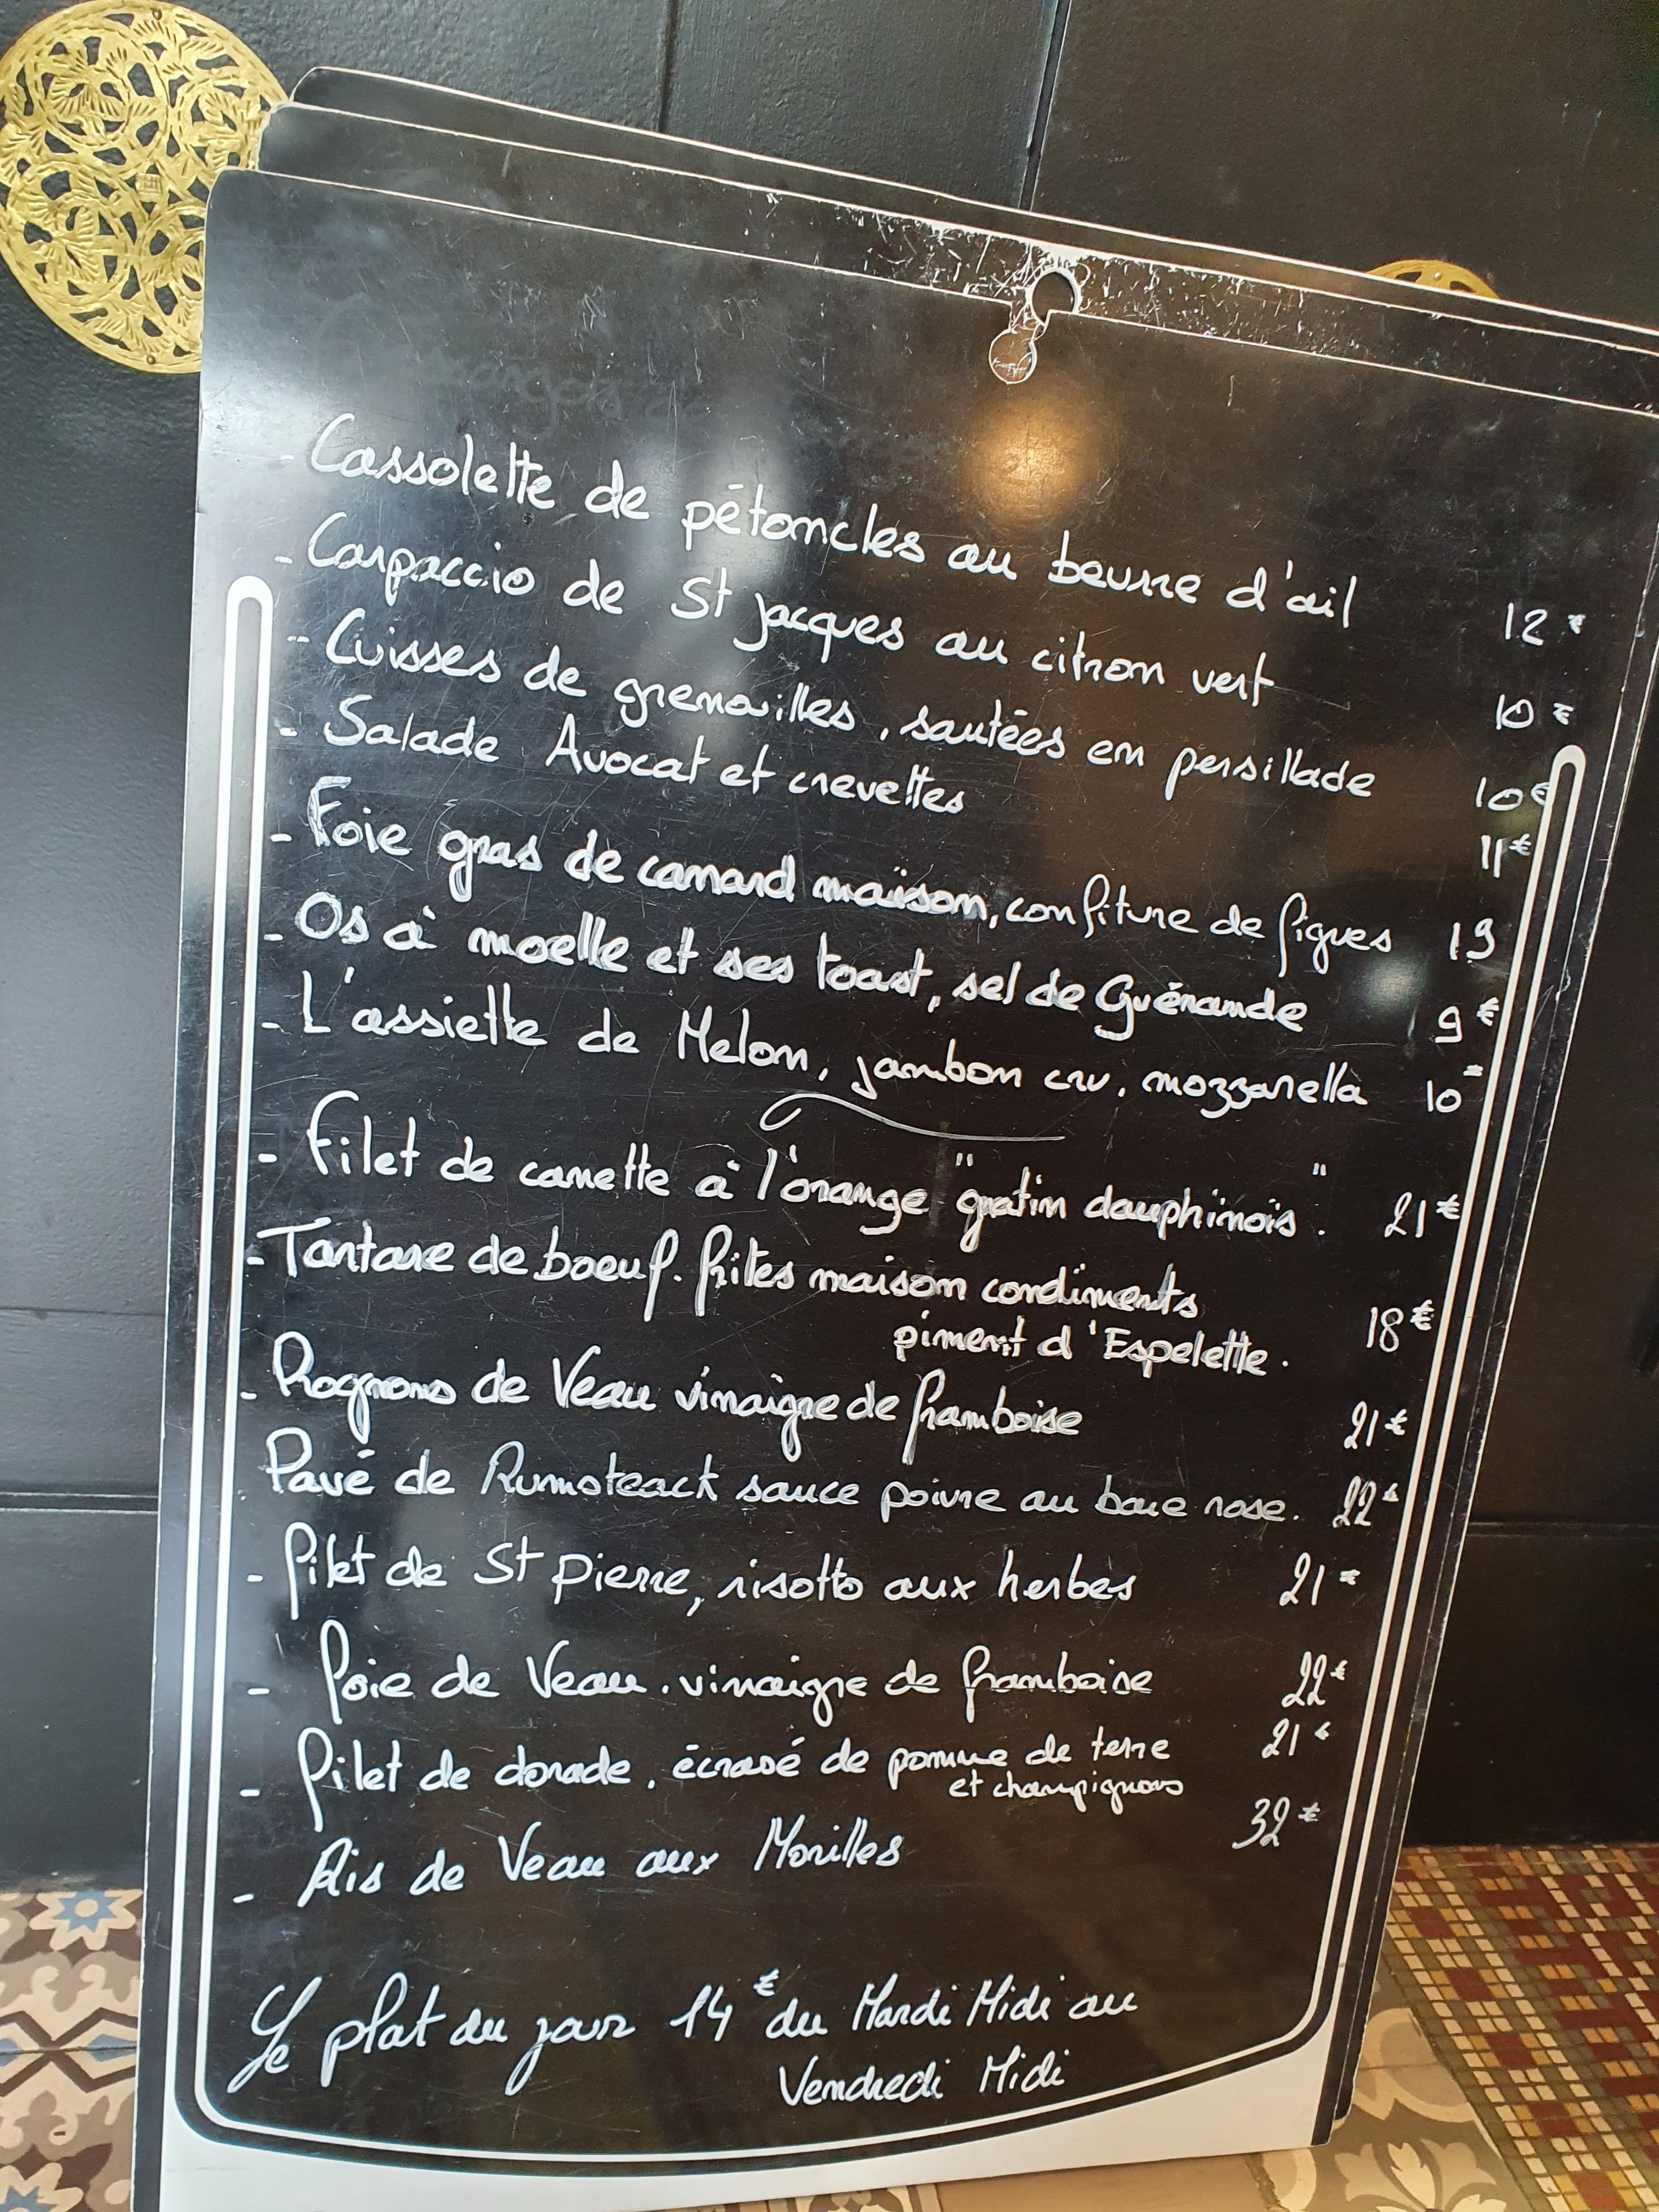 - Cassolette de pétoncles au beurre d'ail 12 €
- Carpaccio de St Jacques au citron vert 10 €
- Cuisses de grenouilles, sautées en persillade 10€
- Salade Avocat et crevettes 11€
- Foie gras de canard maison, confiture de figues 19
- Os à moelle et ses toast, sel de Guérande 9€
- L'assiette de Melon, jambon cru, mozzarella 10
- Filet de canette à l'orange "gratin dauphinois". 21€
- Tartare de boeuf. frites maison condiments 18€
piment d'Espelette.
- Rognons de Veau vinaigre de framboise 21€
- Pavé de Rumsteack sauce poivre au baie rose. 22€
- filet de St Pierre, risotto aux herbes 21€
- foie de Veau. vinaigre de framboise 22€
- filet de dorade. écrasé de pomme de terre 21€
et champignons
- Ris de Veau aux Morilles 32€
Le plat du jour 14€ du Mardi Midi au
Vendredi Midi